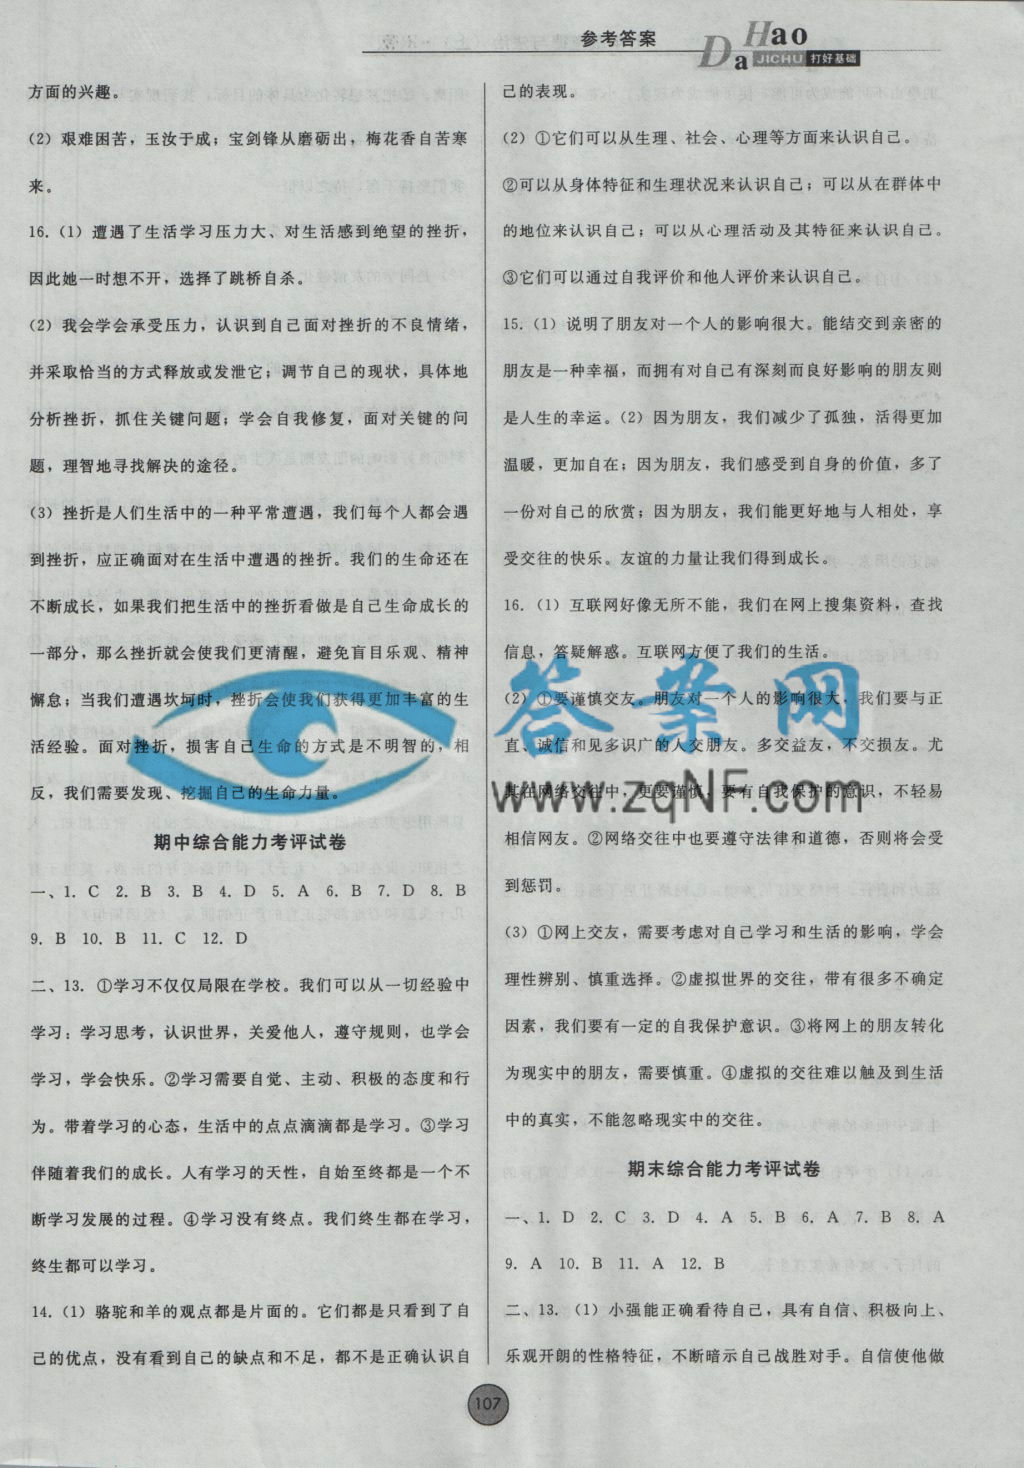 参考答案
Da Hao
JICHU 打好基础
方面的兴趣。
(2) 艰难困苦，玉汝于成；宝剑锋从磨砺出，梅花香自苦寒
来。
16. (1) 遭遇了生活学习压力大、对生活感到绝望的挫折，
因此她一时想不开，选择了跳桥自杀。
(2) 我会学会承受压力，认识到自己面对挫折的不良情绪，
并采取恰当的方式释放或发泄它；调节自己的现状，具体地
分析挫折，抓住关键问题；学会自我修复，面对关键的问
题，理智地寻找解决的途径。
(3) 挫折是人们生活中的一种平常遭遇，我们每个人都会遇
到挫折，应正确面对在生活中遭遇的挫折。我们的生命还在
不断成长，如果我们把生活中的挫折看做是自己生命成长的
一部分，那么挫折就会使我们更清醒，避免盲目乐观、精神
懈怠；当我们遭遇坎坷时，挫折会使我们获得更加丰富的生
活经验。面对挫折，损害自己生命的方式是不明智的，相
反，我们需要发现、挖掘自己的生命力量。
期中综合能力考评试卷
一、1. C 2. B 3. B 4. D 5. A 6. B 7. D 8. B
9. B 10. B 11. C 12. D
二、13. ①学习不仅仅局限在学校。我们可以从一切经验中
学习：学习思考，认识世界，关爱他人，遵守规则，也学会
学习，学会快乐。②学习需要自觉、主动、积极的态度和行
为。带着学习的心态，生活中的点点滴滴都是学习。③学习
伴随着我们的成长。人有学习的天性，自始至终都是一个不
断学习发展的过程。④学习没有终点。我们终生都在学习，
终生都可以学习。
14. (1) 骆驼和羊的观点都是片面的。它们都是只看到了自
己的优点，没有看到自己的缺点和不足，都不是正确认识自
己的表现。
(2) ①它们可以从生理、社会、心理等方面来认识自己。
②可以从身体特征和生理状况来认识自己；可以从在群体中
的地位来认识自己；可以从心理活动及其特征来认识自己。
③它们可以通过自我评价和他人评价来认识自己。
15. (1) 说明了朋友对一个人的影响很大。能结交到亲密的
朋友是一种幸福，而拥有对自己有深刻而良好影响的朋友则
是人生的幸运。(2) 因为朋友，我们减少了孤独，活得更加
温暖，更加自在；因为朋友，我们感受到自身的价值，多了
一份对自己的欣赏；因为朋友，我们能更好地与人相处，享
受交往的快乐。友谊的力量让我们得到成长。
16. (1) 互联网好像无所不能，我们在网上搜集资料，查找
信息，答疑解惑。互联网方便了我们的生活。
(2) ①要谨慎交友。朋友对一个人的影响很大，我们要与正
直、诚信和见多识广的人交朋友。多交益友，不交损友。尤
其在网络交往中，更要谨慎，要有自我保护的意识，不轻易
相信网友。②网络交往中也要遵守法律和道德，否则将会受
到惩罚。
(3) ①网上交友，需要考虑对自己学习和生活的影响，学会
理性辨别、慎重选择。②虚拟世界的交往，带有很多不确定
因素，我们要有一定的自我保护意识。③将网上的朋友转化
为现实中的朋友，需要慎重。④虚拟的交往难以触及到生活
中的真实，不能忽略现实中的交往。
期末综合能力考评试卷
一、1. D 2. C 3. D 4. A 5. B 6. A 7. B 8. A
9. A 10. B 11. A 12. B
二、13. (1) 小强能正确看待自己，具有自信、积极向上、
乐观开朗的性格特征，不断暗示自己战胜对手。自信使他做
答案网
www.zqNF.com
107